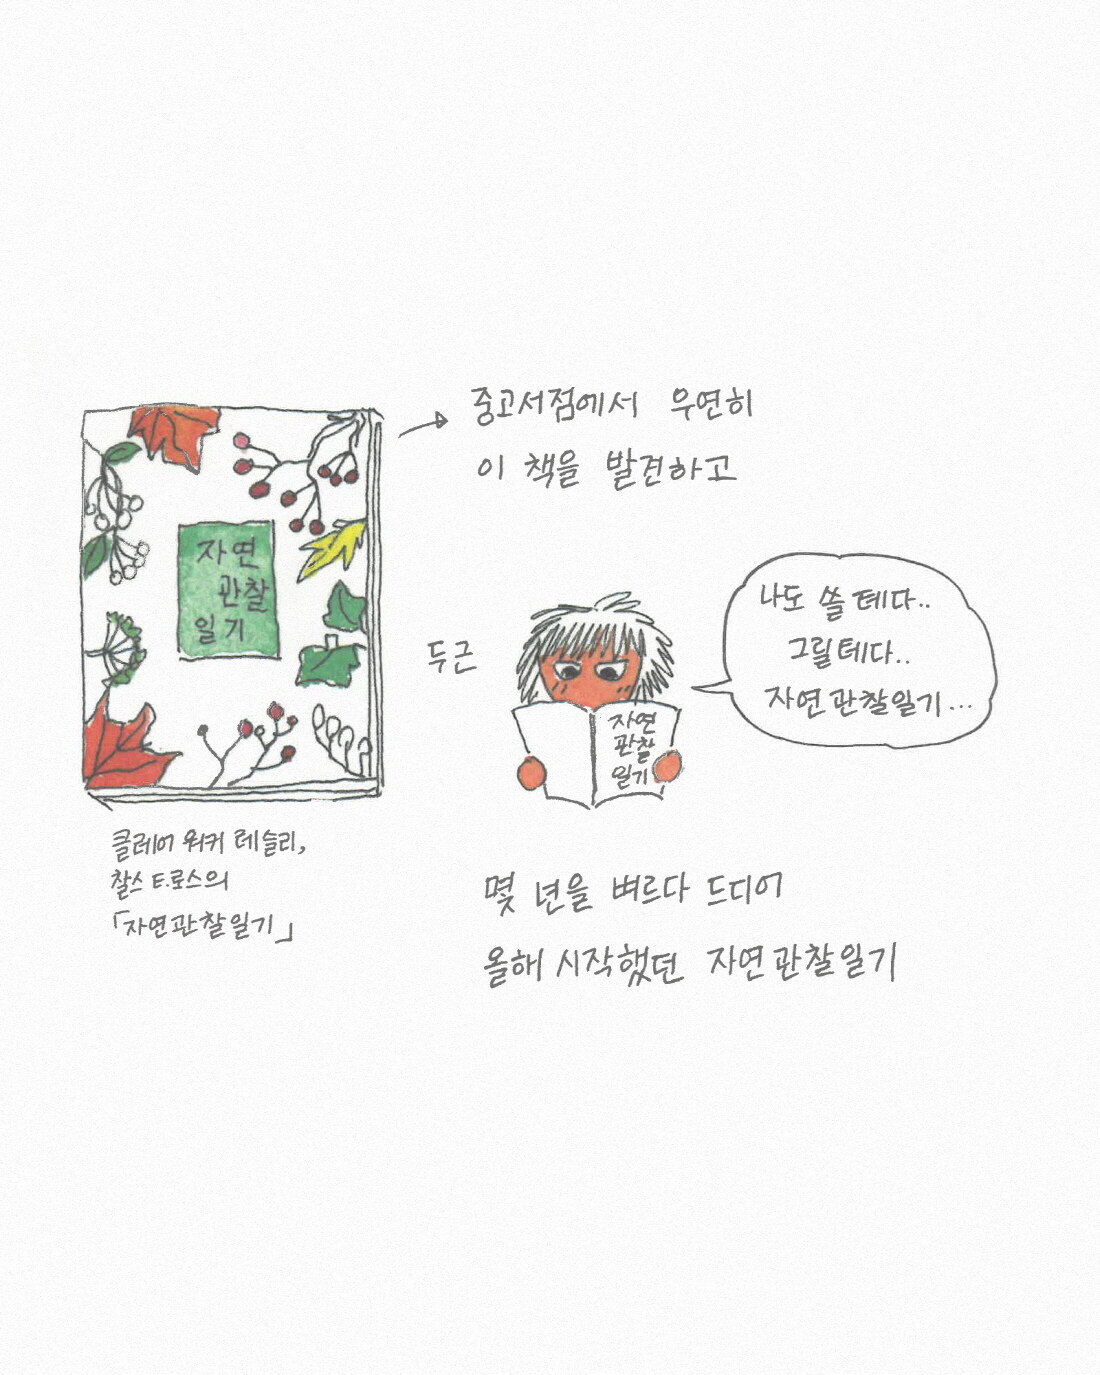 중고서점에서 우연히
이 책을 발견하고
자연
관찰
일기
클레어 워커 레슬리,
찰스 E.로스의
「자연관찰일기」
두근
나도 쓸 테다..
그릴테다..
자연관찰일기...
자연
관찰
일기
몇 년을 벼르다 드디어
올해 시작했던 자연관찰일기